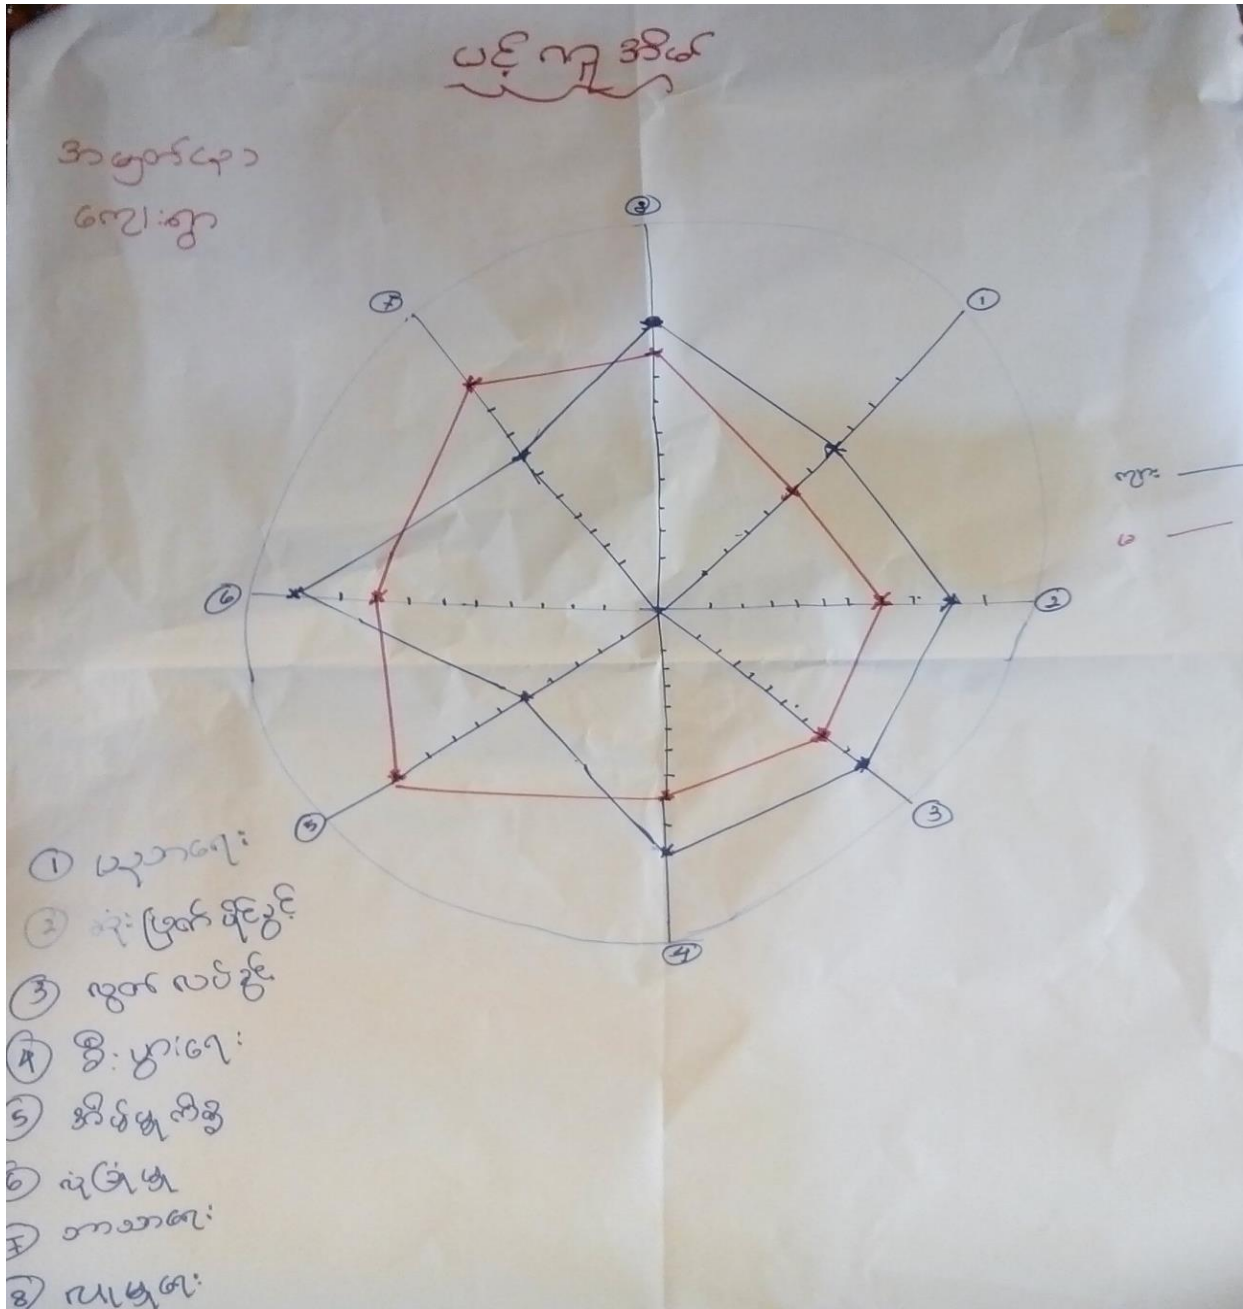 ပင့်ကူအိမ်
ကျေးရွာ
8
7
1
ကျား
မ
6
2
5
3
4
1 ပညာရေး
2 ဆုံးဖြတ်ပိုင်ခွင့်
3 လွတ်လပ်ခွင့်
4 စီးပွားရေး
5 အိမ်မှုကိစ္စ
6 လုံခြုံမှု
7 ဘာသာရေး
8 လူမှုရေး